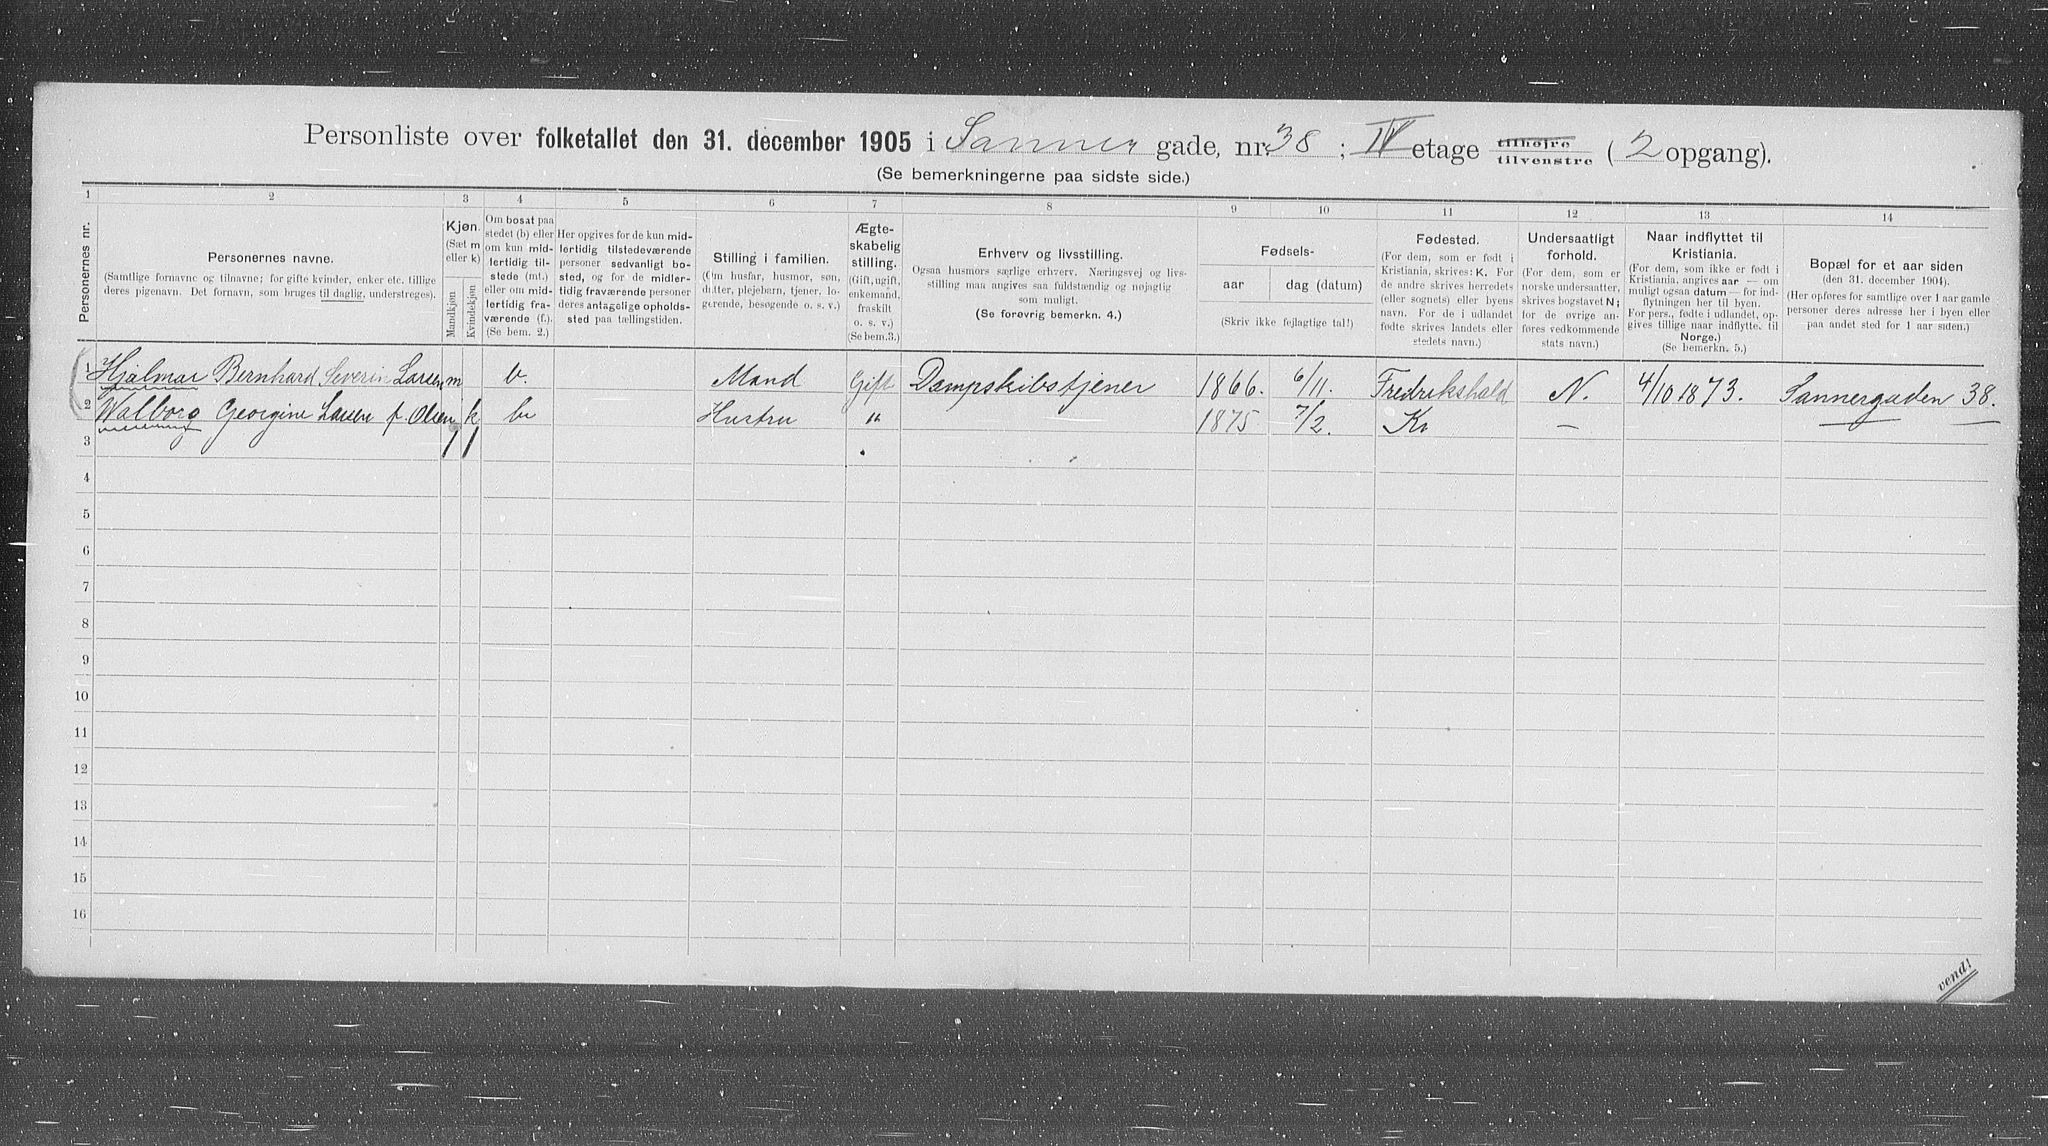 Personliste over folketallet den 31. december 1905 i Sanner gade, nr. 38 ; IV etage tilhøjre tilvenstre ( 2 opgang).
(Se bemerkningerne paa sidste side.)
1 2 3 4 5 6 7 8 9 10 11 12 13 14
Personernes nr.
Personernes navne.
(Samtlige fornavne og tilnavne; for gifte kvinder, enker etc. tillige
deres pigenavn. Det fornavn, som bruges til daglig, understreges).
Kjøn.
(Sæt m
eller k)
Mandkjøn
Kvindekjøn
Om bosat paa
stedet (b) eller
om kun mid-
lertidig til-
stede (mt.)
eller om mid-
lertidig fra-
værende (f.).
(Se bem. 2.)
Her opgives for de kun mid-
lertidig tilstedeværende
personer sedvanligt bo-
sted, og for de midler-
tidig fraværende personer
deres antagelige opholds-
sted paa tællingstiden.
Stilling i familien.
(Om husfar, husmor, søn,
datter, plejebarn, tjener, lo-
gerende, besøgende o. s. v.)
Ægte-
skabelig
stilling.
(Gift, ugift,
enkemand,
fraskilt
o. s. v.)
(Se bem.3.)
Erhverv og livsstilling.
Ogsaa husmors særlige erhverv. Næringsvej og livs-
stilling maa angives saa fuldstændig og nøjagtig
som muligt.
(Se forøvrig bemerkn. 4.)
Fødsels-
aar
dag (datum)
(Skriv ikke fejlagtige tal!)
Fødested.
(For dem, som er født i
Kristiania, skrives: K. For
de andre skrives herredets
(eller sognets) eller byens
navn. For de i udlandet
fødte skrives landets eller
stedets navn.)
Undersaatligt
forhold.
(For dem, som er
norske undersaatter,
skrives bogstavet N;
for de øvrige an-
føres vedkommende
stats navn.)
Naar indflyttet til
Kristiania.
(For dem, som ikke er født i
Kristiania, angives aar — om
muligt ogsaa datum — for ind-
flytningen her til byen.
For pers., fødte i udlandet, op-
gives tillige naar indflytte. til
Norge.)
(Se bemerkn. 5.)
Bopæl for et aar siden
(den 31. december 1904).
(Her opføres for samtlige over 1 aar gamle
personer deres adresse her i byen eller
paa andet sted for 1 aar siden.)
1 Hjalmar Bernhard Severin Larsen m b. Mand Gift Dampskibstjener 1866. 6/11. Fredrikshald N. 4/10 1873. Sannergaden 38.
2 Walborg Georgine Larsen f. Olsen k b Hustru " 1875 7/2. K. — — —
3
4
5
6
7
8
9
10
11
12
13
14
15
16
vend!